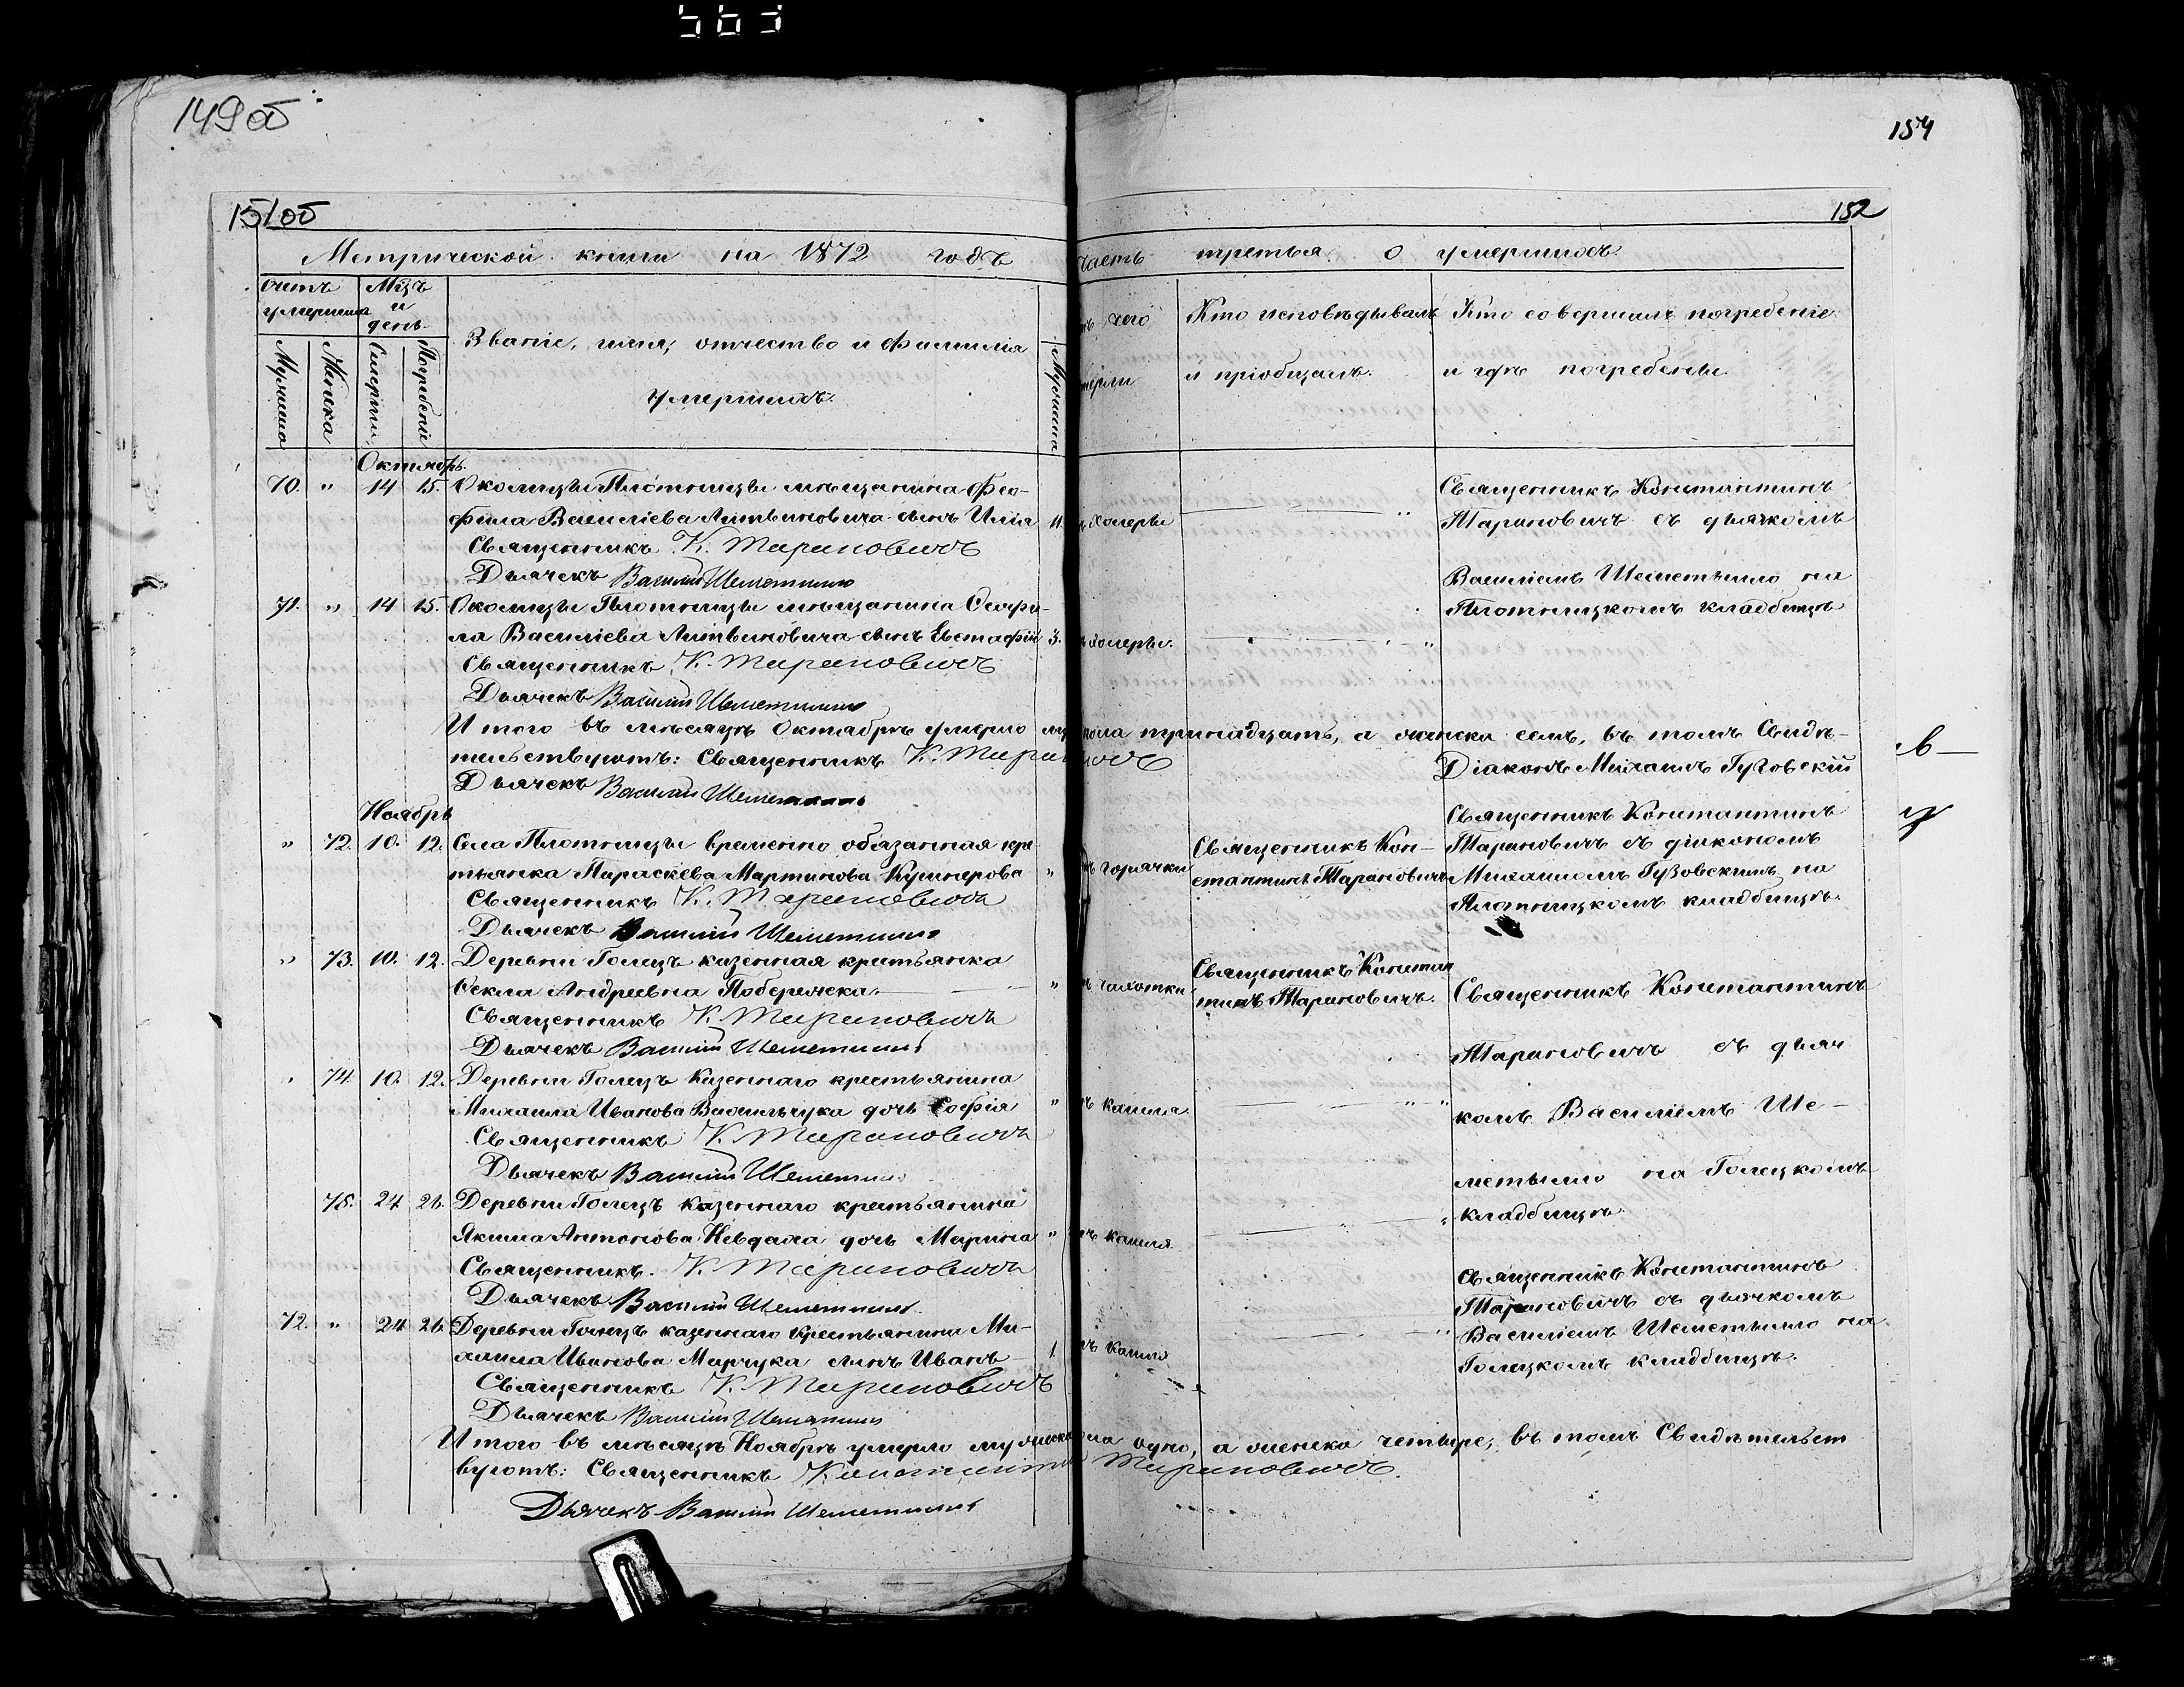 563
149об
154
151об
152
Метрической книги на 1872 годъ
часть третья о умершихъ.
Счетъ умершихъ
Мцъ и день
Мужеска
Женска
Смерти
Погребенія
Званіе, имя, отчество и фамилія
умершихъ.
Мужеска
чего
мерли
Кто исповѣдывалъ
и пріобщалъ.
Кто совершалъ погребеніе
и гдѣ погребены.
Октябрь
70. " 14 15. Околицы Плотницы мѣщанина Фео-
фила Василіева Литвиновича сынъ Илія 11
холеры
Священникъ К. Тарановичъ
Дьячекъ Василій Шеметилло
Священникъ Константинъ
Тарановичъ съ дьячкомъ
Василіемъ Шеметилло на
Плотницкомъ кладбищѣ
71. " 14 15. Околицы Плотницы мѣщанина Феофи-
ла Василіева Литвиновича сынъ Евстафій 3.
холеры.
Священникъ К. Тарановичъ
Дьячекъ Василій Шеметилло
Итого въ мѣсяцѣ Октябрѣ умерло муж пола тринадцать, а женска семь, въ томъ Свидѣ-
тельствуютъ: Священникъ К. Тарановичъ
Діаконъ Михаилъ Гузовскій
Дьячекъ Василій Шеметилло
Ноябрь
" 72. 10. 12. Села Плотницы временно обязанная кре-
стьянка Параскева Мартинова Кушнерова "
горячки
Священникъ К. Тарановичъ
Дьячекъ Василій Шеметилло
Священникъ Кон-
стантинъ Тарановичъ
Священникъ Константинъ
Тарановичъ съ діакономъ
Михаиломъ Гузовскимъ на
Плотницкомъ кладбищѣ.
" 73. 10. 12. Деревни Голецъ казенная крестьянка
Ѳекла Андреевна Побережска. "
чахотки
Священникъ К. Тарановичъ
Дьячекъ Василій Шеметилло
Священникъ Констан
тинъ Тарановичъ.
Священникъ Константинъ
Тарановичъ съ дьяч
комъ Василіемъ Ше-
метилло на Голецкомъ
кладбищѣ.
" 74 10. 12. Деревни Голецъ Казеннаго крестьянина
Михаила Иванова Васильчука дочь Софія "
кашля
Священникъ К. Тарановичъ
Дьячекъ Василій Шеметилло
75. 24 26. Деревни Голецъ казеннаго крестьянина
Якима Антонова Невдаха дочь Марина "
кашля
Священникъ К. Тарановичъ
Дьячекъ Василій Шеметилло
72. " 24 26. Деревни Голецъ казеннаго крестьянина Ми-
хаила Иванова Марчука сынъ Иванъ 1.
кашля
Священникъ К. Тарановичъ
Дьячекъ Василій Шеметилло
Священникъ Константинъ
Тарановичъ съ дьячкомъ
Василіемъ Шеметилло на
Голецкомъ кладбищѣ.
Итого въ мѣсяцѣ Ноябрѣ умерло мужеска пола одно, а женска четыре, въ томъ Свидѣтельст
вуютъ: Священникъ Константинъ Тарановичъ.
Дьячекъ Василій Шеметилло